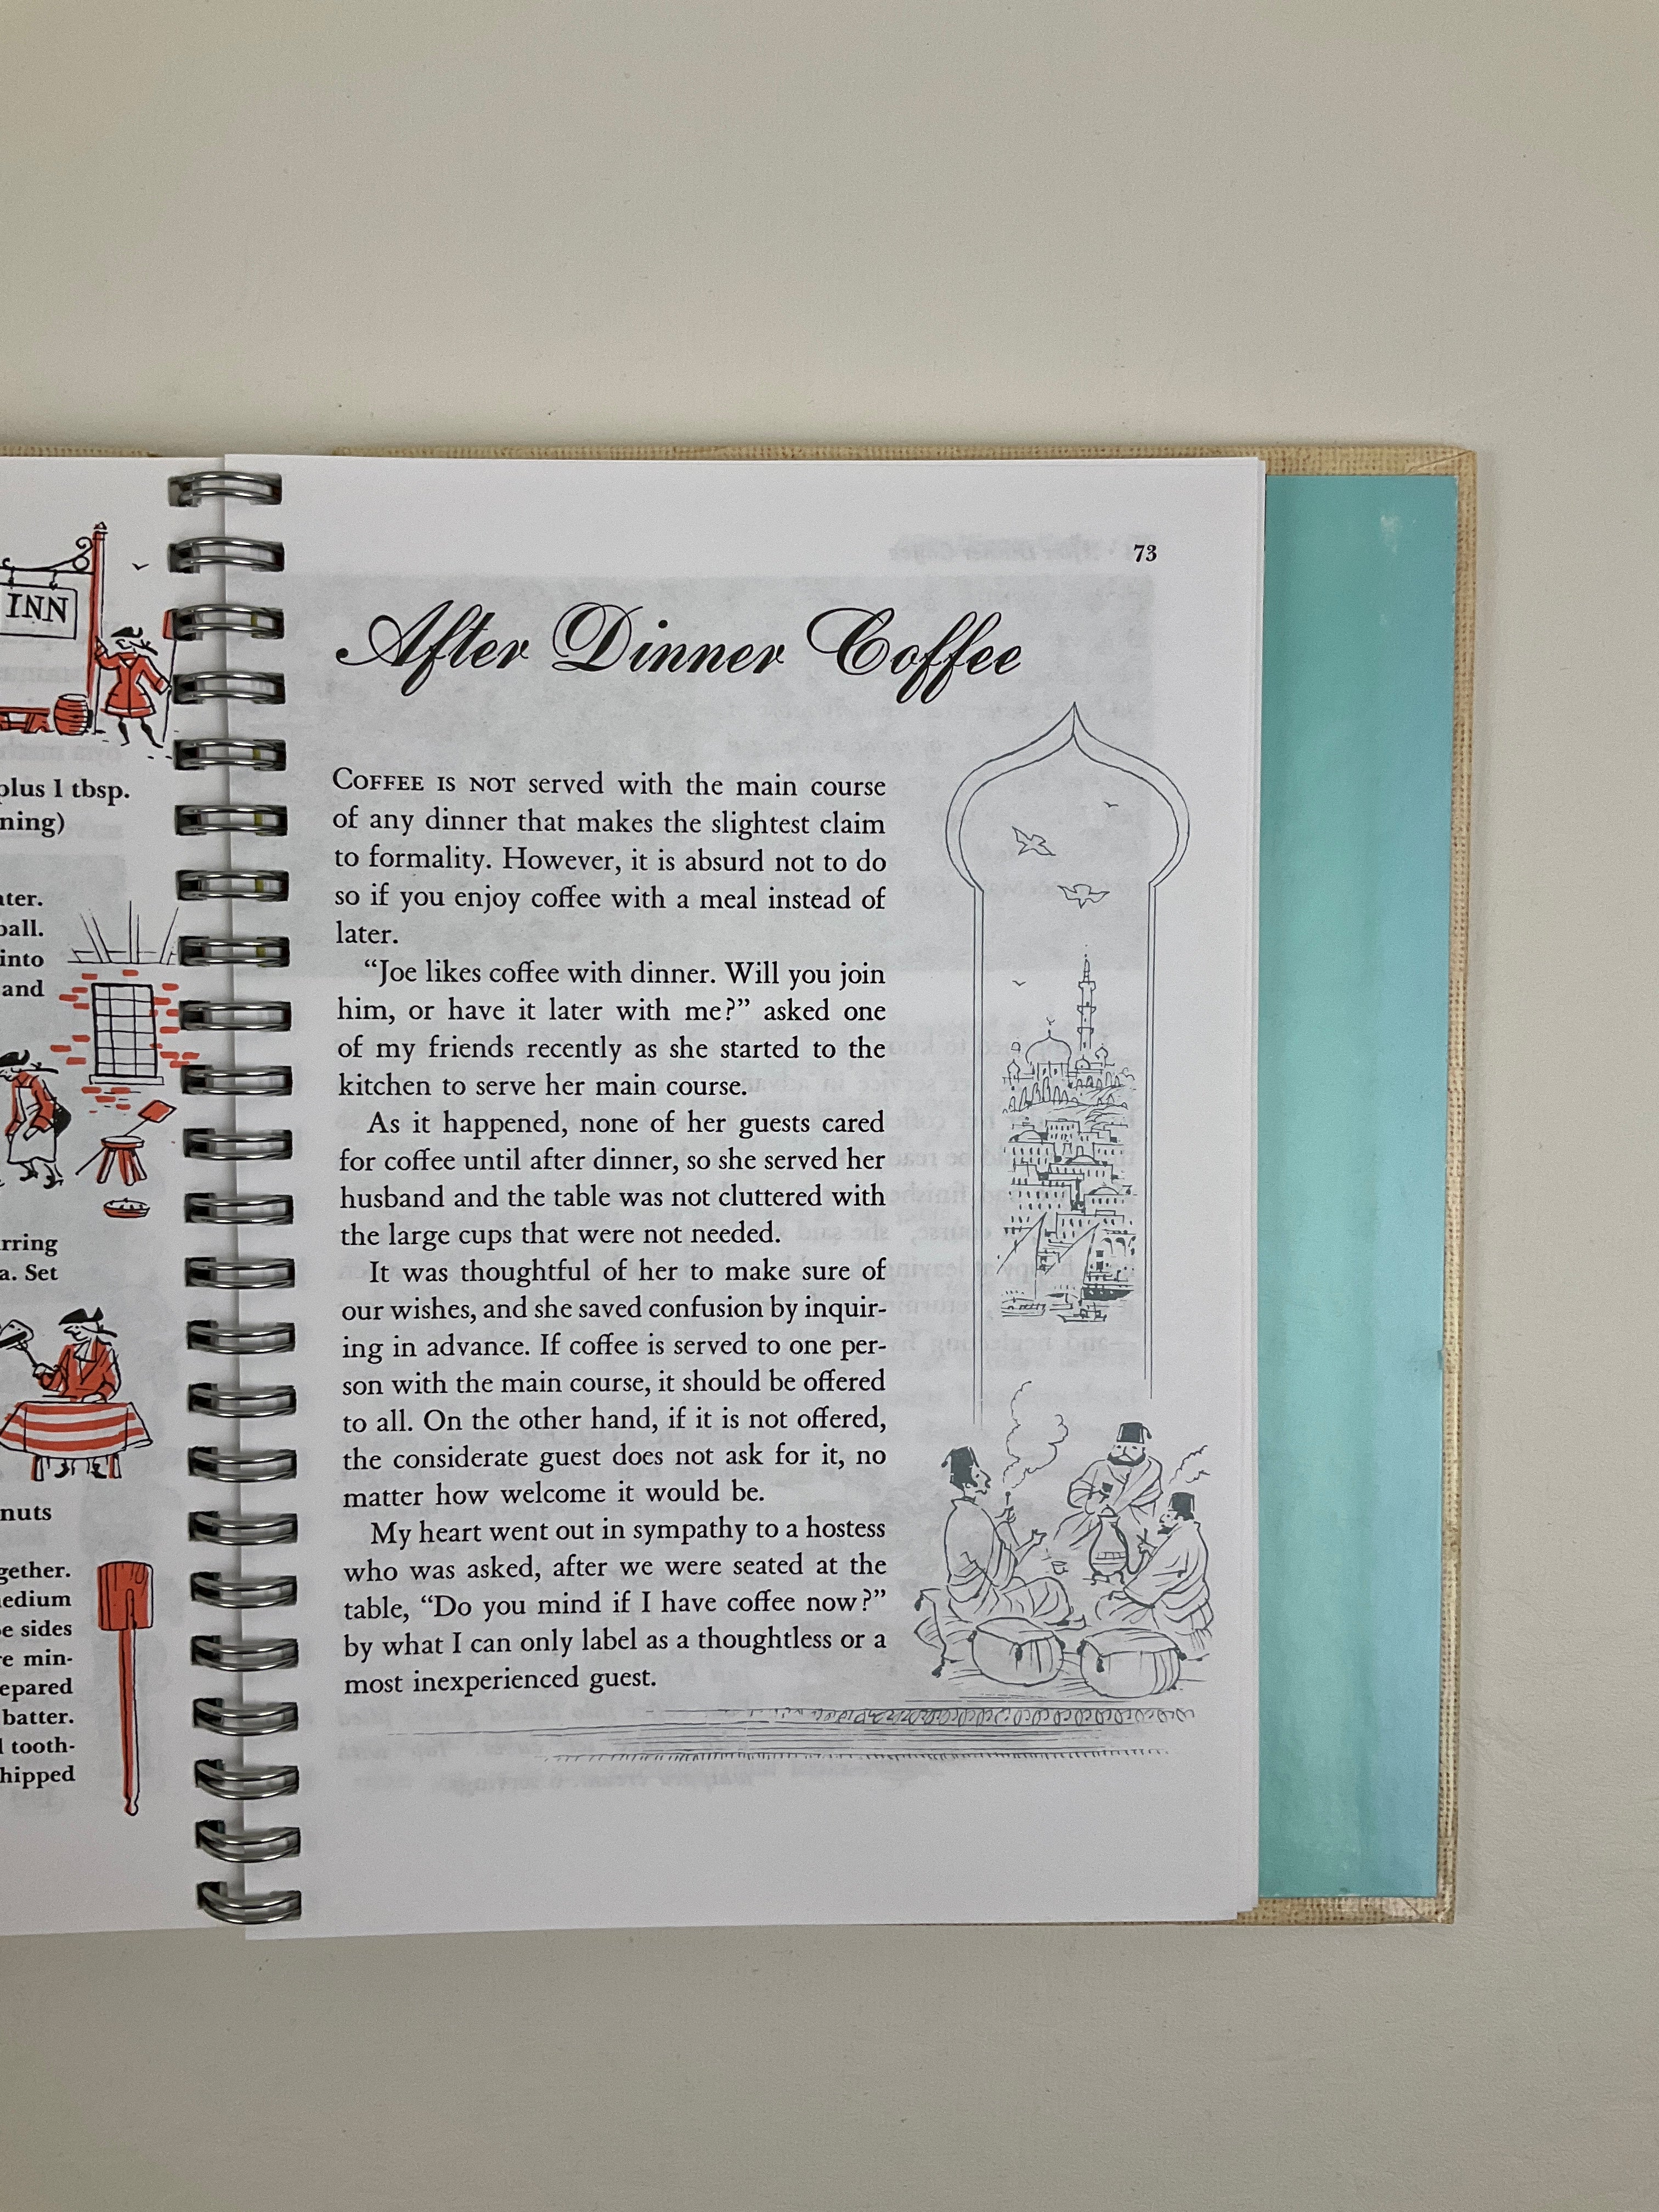 INN
plus 1 tbsp.
ning)
ater.
ball.
into
and
rring
a. Set
nuts
gether.
edium
e sides
re min-
epared
batter.
tooth-
hipped
73
After Dinner Coffee
COFFEE IS NOT served with the main course
of any dinner that makes the slightest claim
to formality. However, it is absurd not to do
so if you enjoy coffee with a meal instead of
later.
“Joe likes coffee with dinner. Will you join
him, or have it later with me?” asked one
of my friends recently as she started to the
kitchen to serve her main course.
As it happened, none of her guests cared
for coffee until after dinner, so she served her
husband and the table was not cluttered with
the large cups that were not needed.
It was thoughtful of her to make sure of
our wishes, and she saved confusion by inquir-
ing in advance. If coffee is served to one per-
son with the main course, it should be offered
to all. On the other hand, if it is not offered,
the considerate guest does not ask for it, no
matter how welcome it would be.
My heart went out in sympathy to a hostess
who was asked, after we were seated at the
table, “Do you mind if I have coffee now?”
by what I can only label as a thoughtless or a
most inexperienced guest.